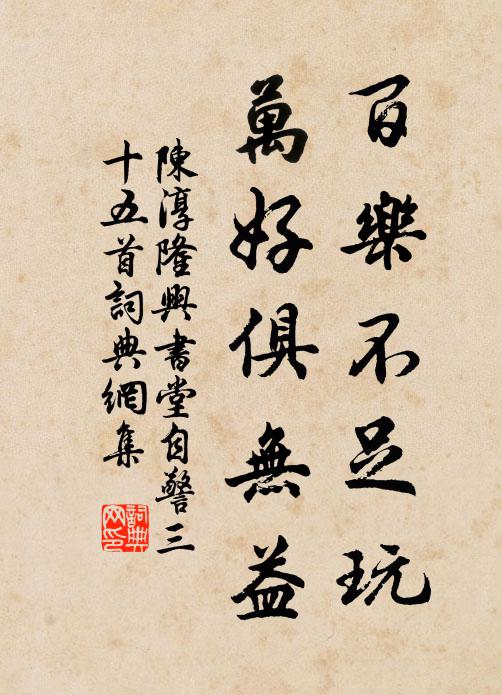 百樂不足玩
萬好俱無益
陳淳隆興書堂自警三
十五首詞典網集
詞典網印